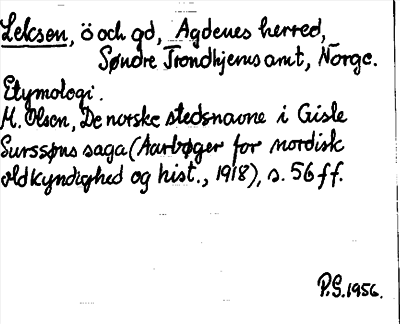 Leksen, ö och gd, Agdenes herred,
Søndre Trondhjems amt, Norge.
Etymologi.
M. Olsen, De norske stedsnavne i Gisle
Surssøns saga (Aarbøger for nordisk
oldkyndighed og hist., 1918), s. 56 ff.
P.S. 1956.